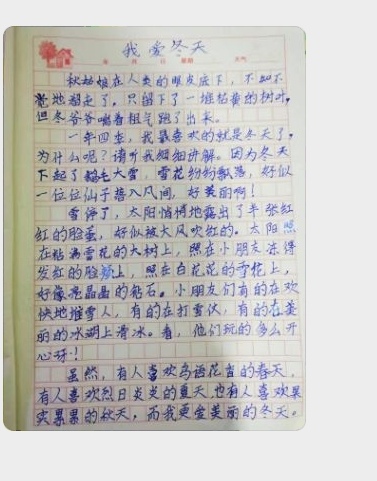 我爱冬天
年 月 日 星期 天气
秋姑娘在人类的眼皮底下，不知不
觉地溜走了，只留下了一堆枯黄的树叶，
但冬爷爷喘着粗气跑了出来。
一年四季，我最喜欢的就是冬天了，
为什么呢？请听我细细讲解。因为冬天
下起了鹅毛大雪，雪花纷纷飘落，好似
一位位仙子落入凡间，好美丽啊！
雪停了，太阳悄悄地露出了半张红
红的脸蛋，好似被大风吹红的。太阳照
在贴满雪花的大树上，照在小朋友冻得
发红的脸颊上，照在白花花的雪花上，
好像亮晶晶的钻石。小朋友们有的在欢
快地堆雪人，有的在打雪仗，有的在美
丽的冰湖上滑冰。看，他们玩的多么开
心呀！
虽然，有人喜欢鸟语花香的春天，
有人喜欢烈日炎炎的夏天，也有人喜欢果
实累累的秋天，而我更爱美丽的冬天。